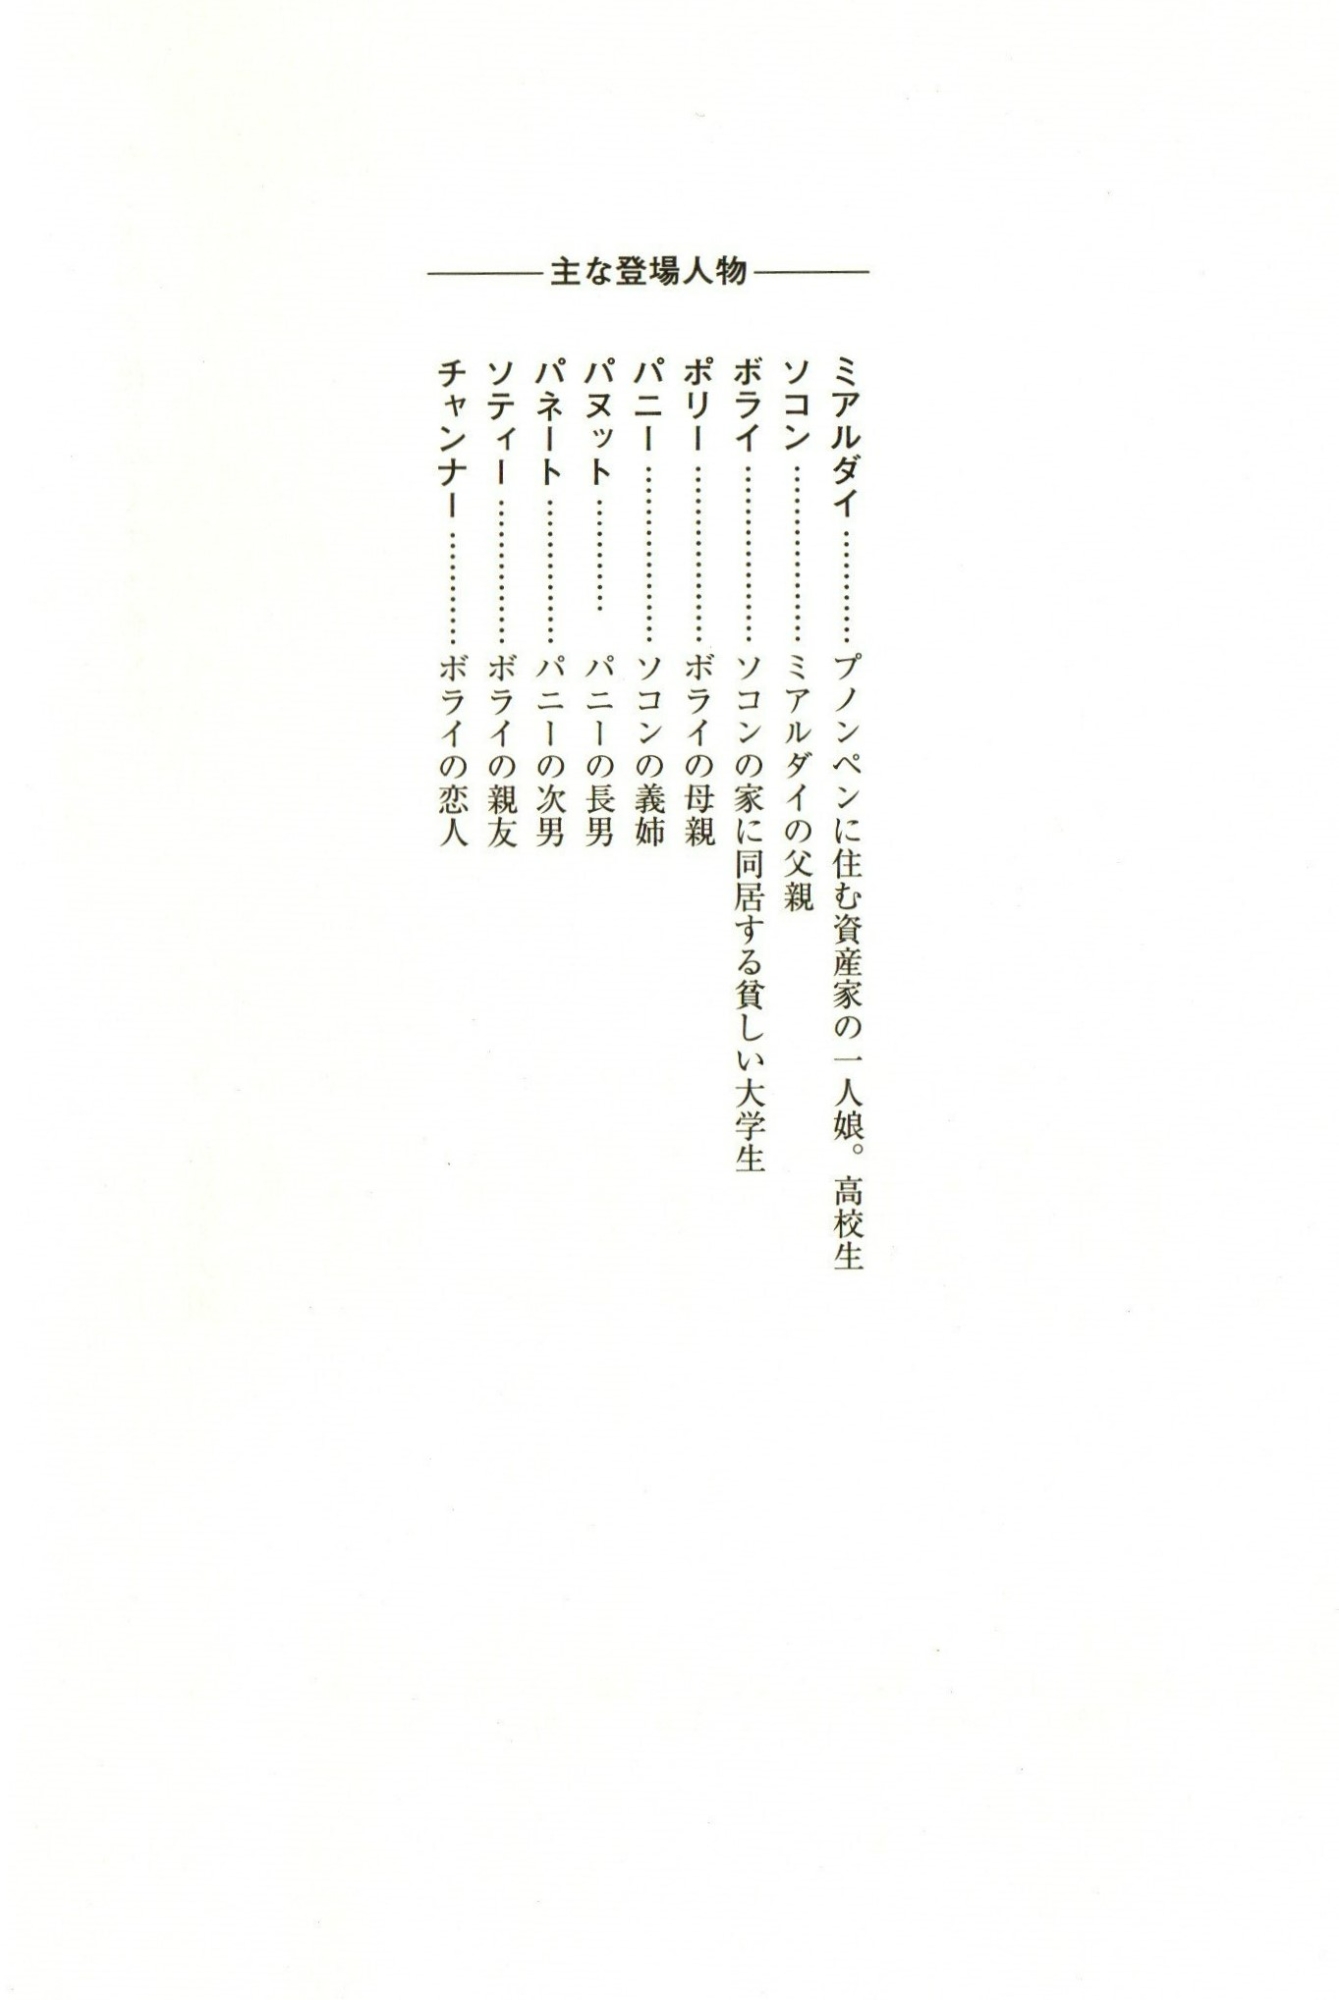 主な登場人物
ミアルダイ…………プノンペンに住む資産家の一人娘。高校生
ソコン………………ミアルダイの父親
ボライ………………ソコンの家に同居する貧しい大学生
ポリー………………ボライの母親
パニー………………ソコンの義姉
パヌット…………パニーの長男
パネート……………パニーの次男
ソティー……………ボライの親友
チャンナー…………ボライの恋人